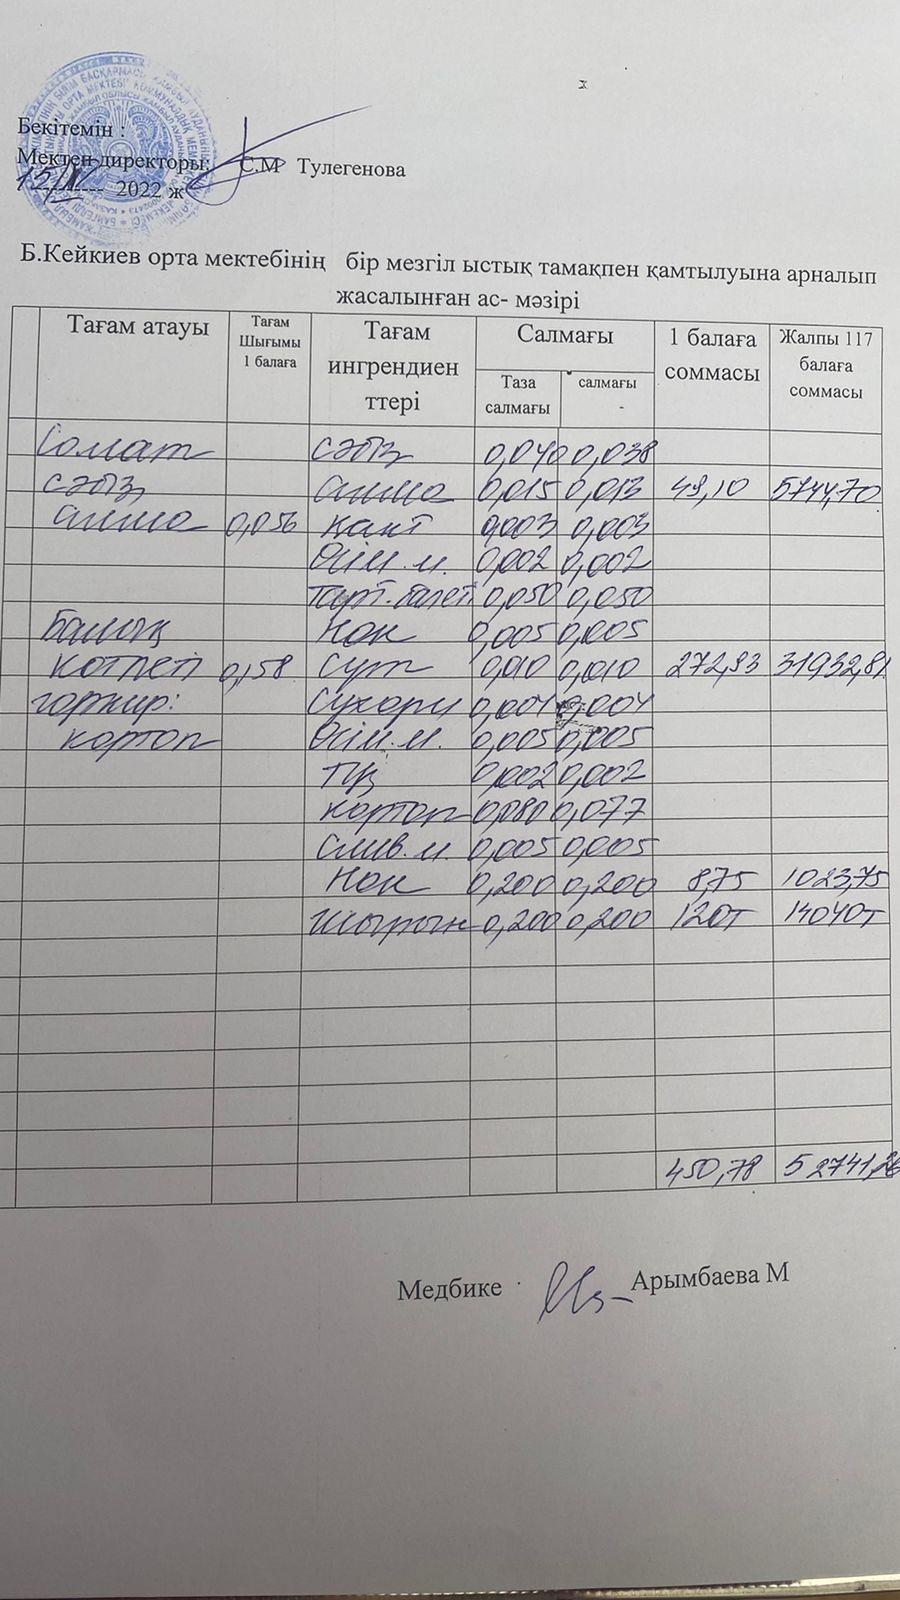 Бекітемін :
Мектеп директоры: С.М Тулегенова
15/IV 2022 ж
Б.Кейкиев орта мектебінің бір мезгіл ыстық тамақпен қамтылуына арналып
жасалынған ас- мәзірі
Тағам атауы
Тағам
Шығымы
1 балаға
Тағам
ингрендиен
ттері
Салмағы
Таза
салмағы
салмағы
1 балаға
соммасы
Жалпы 117
балаға
соммасы
Сәбіз 0,040 0,038
сәбіз алма 0,015 0,013 49,10 5744,70
алма 0,056 қант 0,003 0,003
Өсім.м. 0,002 0,002
0,050 0,050
Балық Нан 0,005 0,005
котлеті 0,158 Сүт 0,010 0,010 272,93 31932,81
гарнир: Сухари 0,004 0,004
картоп Өсім.м. 0,005 0,005
тұз 0,002 0,002
картоп 0,080 0,077
Слив.м. 0,005 0,005
Нан 0,200 0,200 8,75 1023,75
шырын 0,200 0,200 120т 14040т
450,78 52741,26
Медбике Арымбаева М